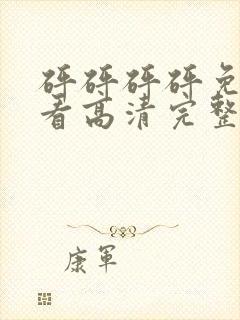 砰砰砰砰免
看高清完整
康軍